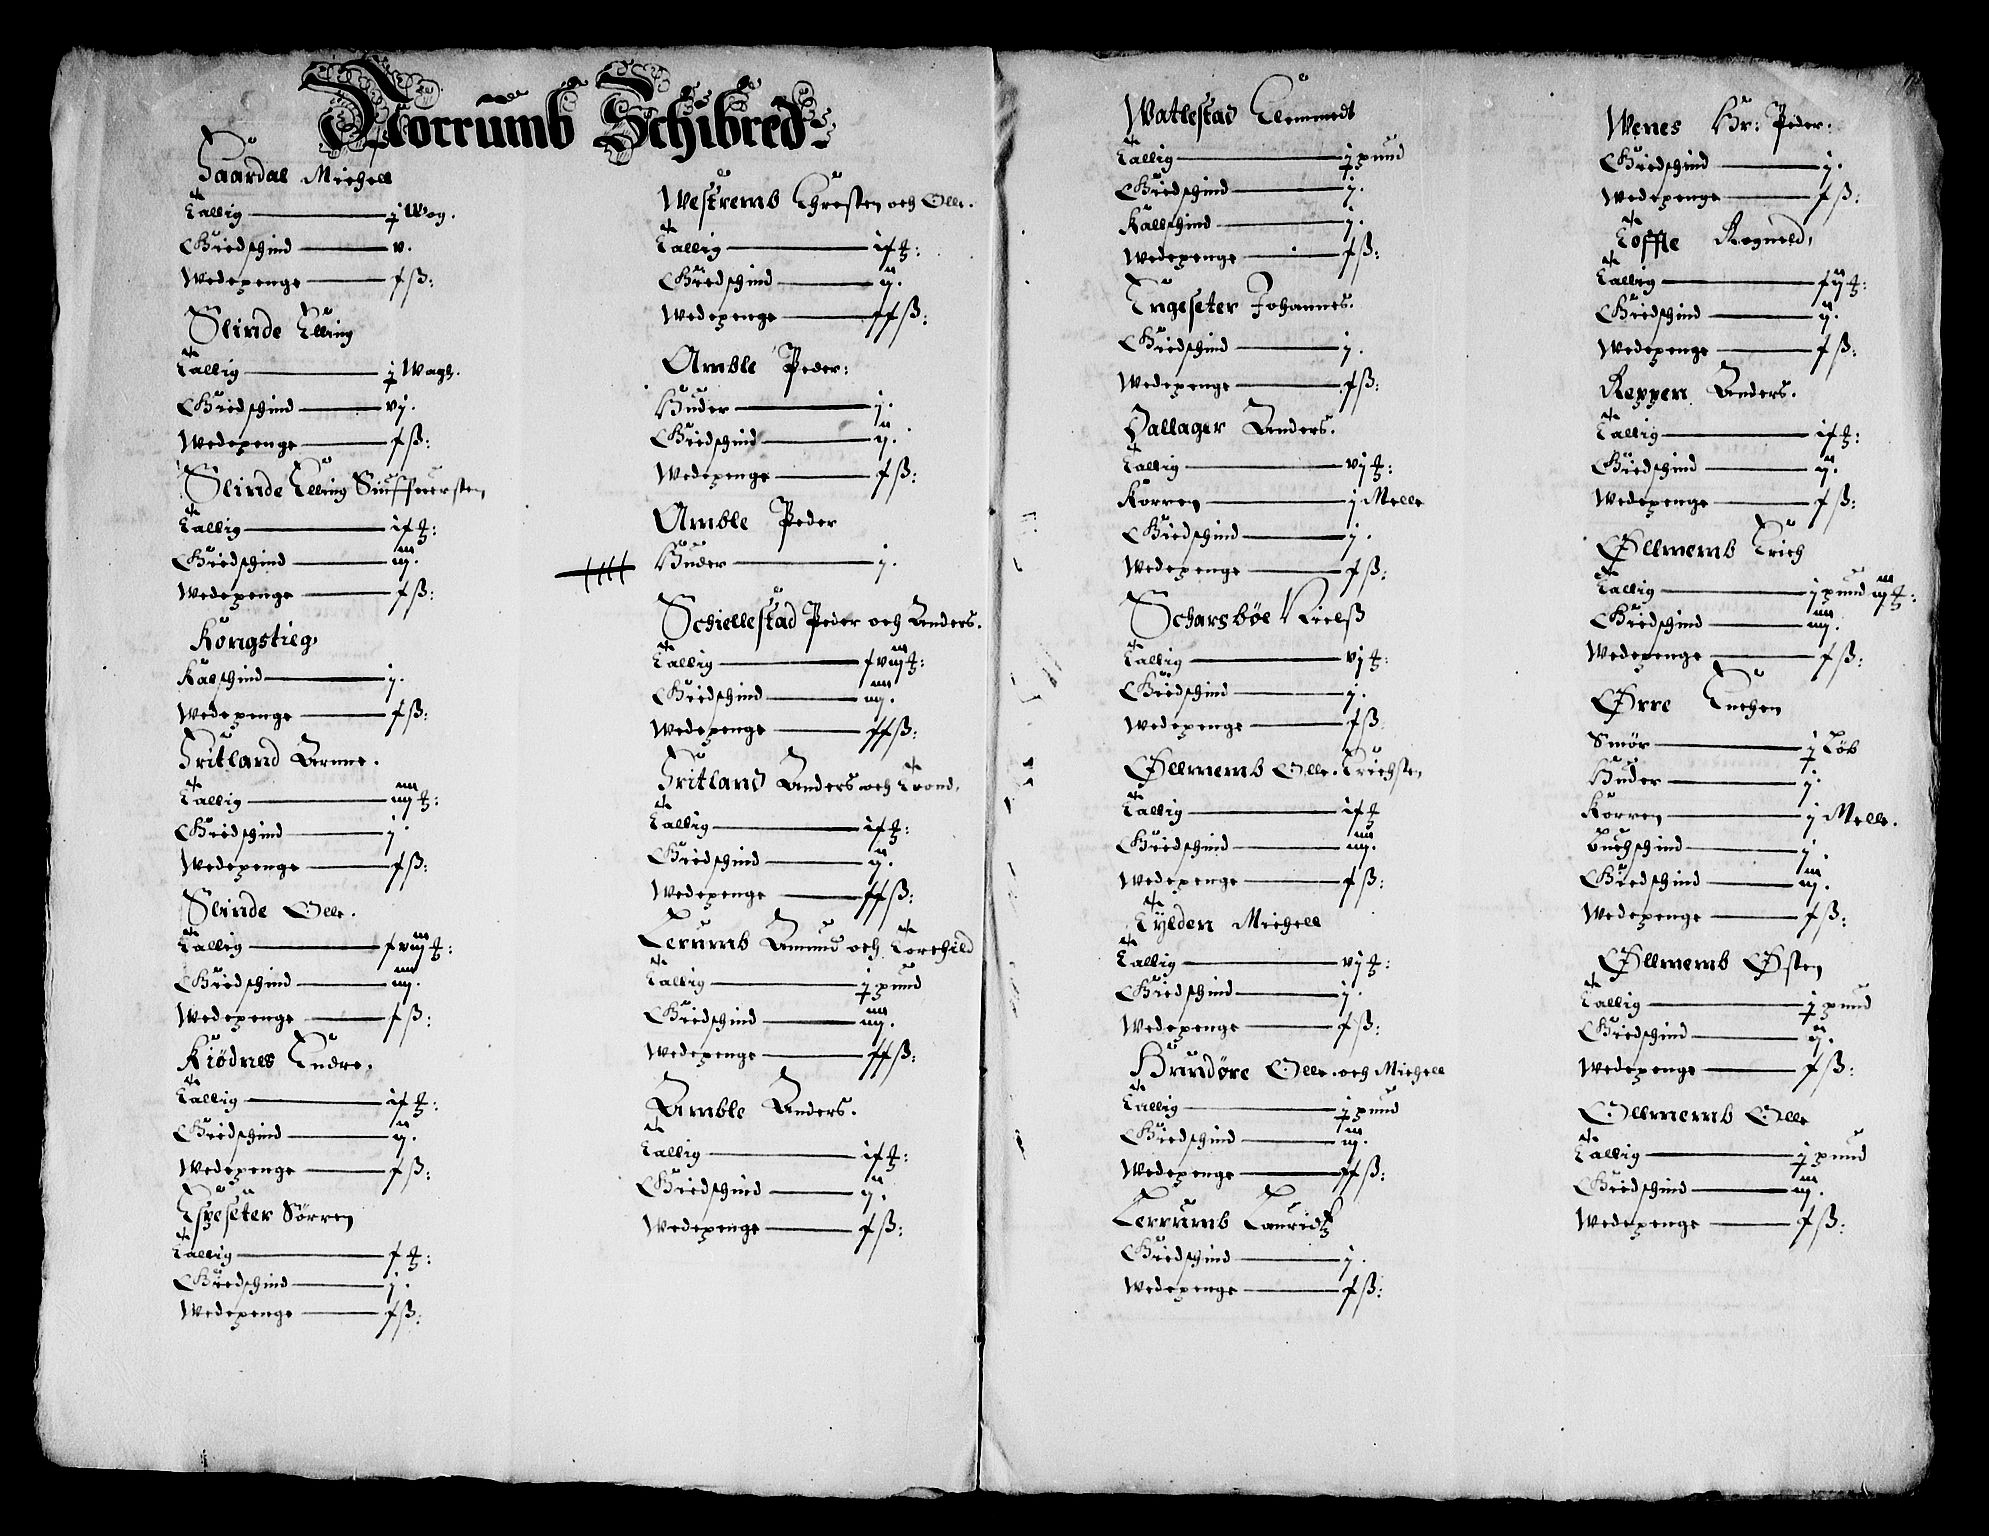 Norrumb Schibred
Haardal Michell
Tallig j Wog.
Giedschind v.
Wedepenge f ß:
Slinde Elling
Tallig j Wogh.
Giedschind vj.
Wedepenge f ß:
Slinde Elling Siuffuersten
Tallig if ℔:
Giedschind iij.
Wedepenge f ß:
Kongstieg
Kalschind j.
Wedepenge f ß:
Fritland Arnne.
Tallig iiij ℔:
Giedschind j.
Wedepenge f ß:
Slinde Olle.
Tallig f viij ℔:
Giedschind iiij.
Wedepenge f ß:
Kiødnes Endre.
Tallig if ℔:
Giedschind ij.
Wedepenge f ß:
Espeseter Sørren
Tallig f ℔:
Giedschind j.
Wedepenge f ß:
Westremb Chresten och Olle.
Tallig if ℔:
Giedschind ij.
Wedepenge ff ß:
Amble Peder:
Huder j.
Giedschind ij.
Wedepenge f ß:
Amble Peder
Huder j.
Schiellestad Peder och Anders.
Tallig f viij ℔:
Giedschind iiij.
Wedepenge ff ß:
Fritland Anders och Trond.
Tallig if ℔:
Giedschind ij.
Wedepenge ff ß:
Lerumb Amund och Torchild
Tallig j pund
Giedschind iiij.
Wedepenge ff ß:
Amble Anders.
Tallig if ℔:
Giedschind ij.
Wedepenge f ß:
Watlestad Clemmedt
Tallig j pund
Giedschind j.
Kallschind j.
Wedepenge f ß:
Engeseter Johannes.
Giedschind j.
Wedepenge f ß:
Hallager Anders.
Tallig vj ℔:
Korren j Melle
Giedschind j.
Wedepenge f ß:
Scharsbøe Nielß
Tallig vj ℔:
Giedschind j.
Wedepenge f ß:
Øllmemb Olle Erichsten
Tallig if ℔
Giedschind iiij.
Wedepenge f ß:
Tylden Michell
Tallig vj ℔:
Giedschind j.
Wedepenge f ß:
Hundøre Olle och Michell
Tallig j pund
Giedschind iij.
Wedepenge ff ß:
Lerrumb Lauridtz
Giedschind j.
Wedepenge f ß:
Wenes Hr: Peder:
Giedschind j.
Wedepenge f ß:
Toffte Rogneld,
Tallig f ij ℔:
Giedschind ij.
Wedepenge f ß:
Reppen Anders.
Tallig if ℔:
Giedschind ij.
Wedepenge f ß:
Øllmemb Erich
Tallig j pund iij ℔:
Giedschind iiij.
Wedepenge f ß:
Ørre Enchen
Smør j Løb
Huder j.
Korren j Melle.
Buchschind j.
Giedschind iij.
Wedepenge f ß:
Øllmemb Østen
Tallig j pund
Giedschind ij.
Wedepenge f ß:
Ollmemb Olle
Tallig j pund
Giedschind iij.
Wedepenge f ß: